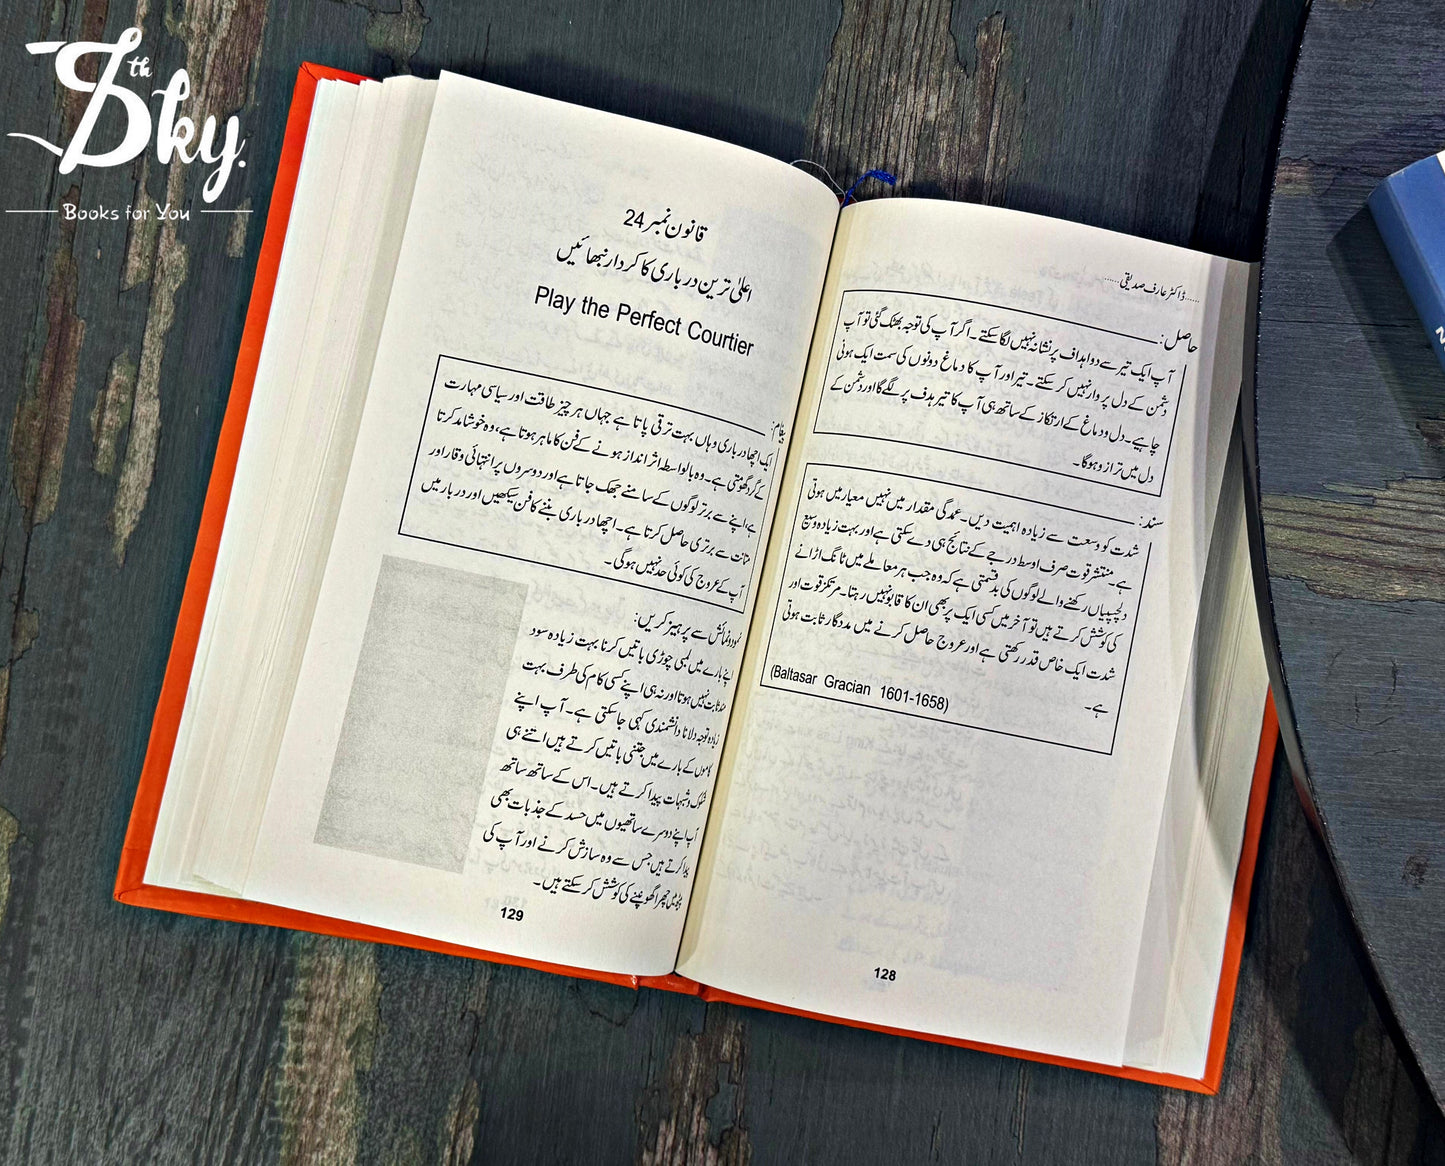 7th Sky.
Books for You
......ڈاکٹر عارف صدیقی......
حاصل:
آپ ایک تیر سے دو اہداف پر نشانہ نہیں لگا سکتے۔ اگر آپ کی توجہ بھٹک گئی تو آپ
دشمن کے دل پر وار نہیں کر سکتے۔ تیر اور آپ کا دماغ دونوں کی سمت ایک ہونی
چاہیے۔ دل و دماغ کے ارتکاز کے ساتھ ہی آپ کا تیر ہدف پر لگے گا اور دشمن کے
دل میں ترازو ہوگا۔
سند:
شدت کو وسعت سے زیادہ اہمیت دیں۔ عمدگی مقدار میں نہیں معیار میں ہوتی
ہے۔ منتشر قوت صرف اوسط درجے کے نتائج ہی دے سکتی ہے اور بہت زیادہ وسیع
دلچسپیاں رکھنے والے لوگوں کی بدقسمتی ہے کہ وہ جب ہر معاملے میں ٹانگ اڑانے
کی کوشش کرتے ہیں تو آخر میں کسی ایک پر بھی ان کا قابو نہیں رہتا۔ مرتکز قوت اور
شدت ایک خاص قدر رکھتی ہے اور عروج حاصل کرنے میں مددگار ثابت ہوتی
ہے۔
(Baltasar Gracian 1601-1658)
128
قانون نمبر 24
اعلیٰ ترین درباری کا کردار نبھائیں
Play the Perfect Courtier
پیغام:
ایک اچھا درباری وہاں بہت ترقی پاتا ہے جہاں ہر چیز طاقت اور سیاسی مہارت
کے گرد گھومتی ہے۔ وہ بالواسطہ اثر انداز ہونے کے فن کا ماہر ہوتا ہے، وہ خوشامد کرتا
ہے، اپنے سے برتر لوگوں کے سامنے جھک جاتا ہے اور دوسروں پر انتہائی وقار اور
متانت سے برتری حاصل کرتا ہے۔ اچھا درباری بننے کا فن سیکھیں اور دربار میں
آپ کے عروج کی کوئی حد نہیں ہوگی۔
نمود و نمائش سے پرہیز کریں:
اپنے بارے میں لمبی چوڑی باتیں کرنا بہت زیادہ سود
مند ثابت نہیں ہوتا اور نہ ہی اپنے کسی کام کی طرف بہت
زیادہ توجہ دلانا دانشمندی کہی جا سکتی ہے۔ آپ اپنے
کاموں کے بارے میں جتنی باتیں کرتے ہیں اتنے ہی
شکوک و شبہات پیدا کرتے ہیں۔ اس کے ساتھ ساتھ
آپ اپنے دوسرے ساتھیوں میں حسد کے جذبات بھی
پیدا کرتے ہیں جس سے وہ سازش کرنے اور آپ کی
پیٹھ میں چھرا گھونپنے کی کوشش کر سکتے ہیں۔
129